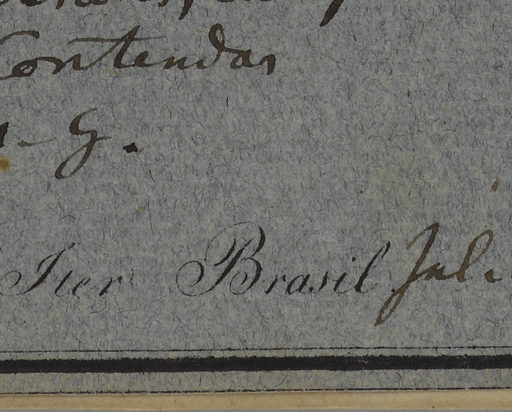 Contendas
G.
Iter Brasil Jul.